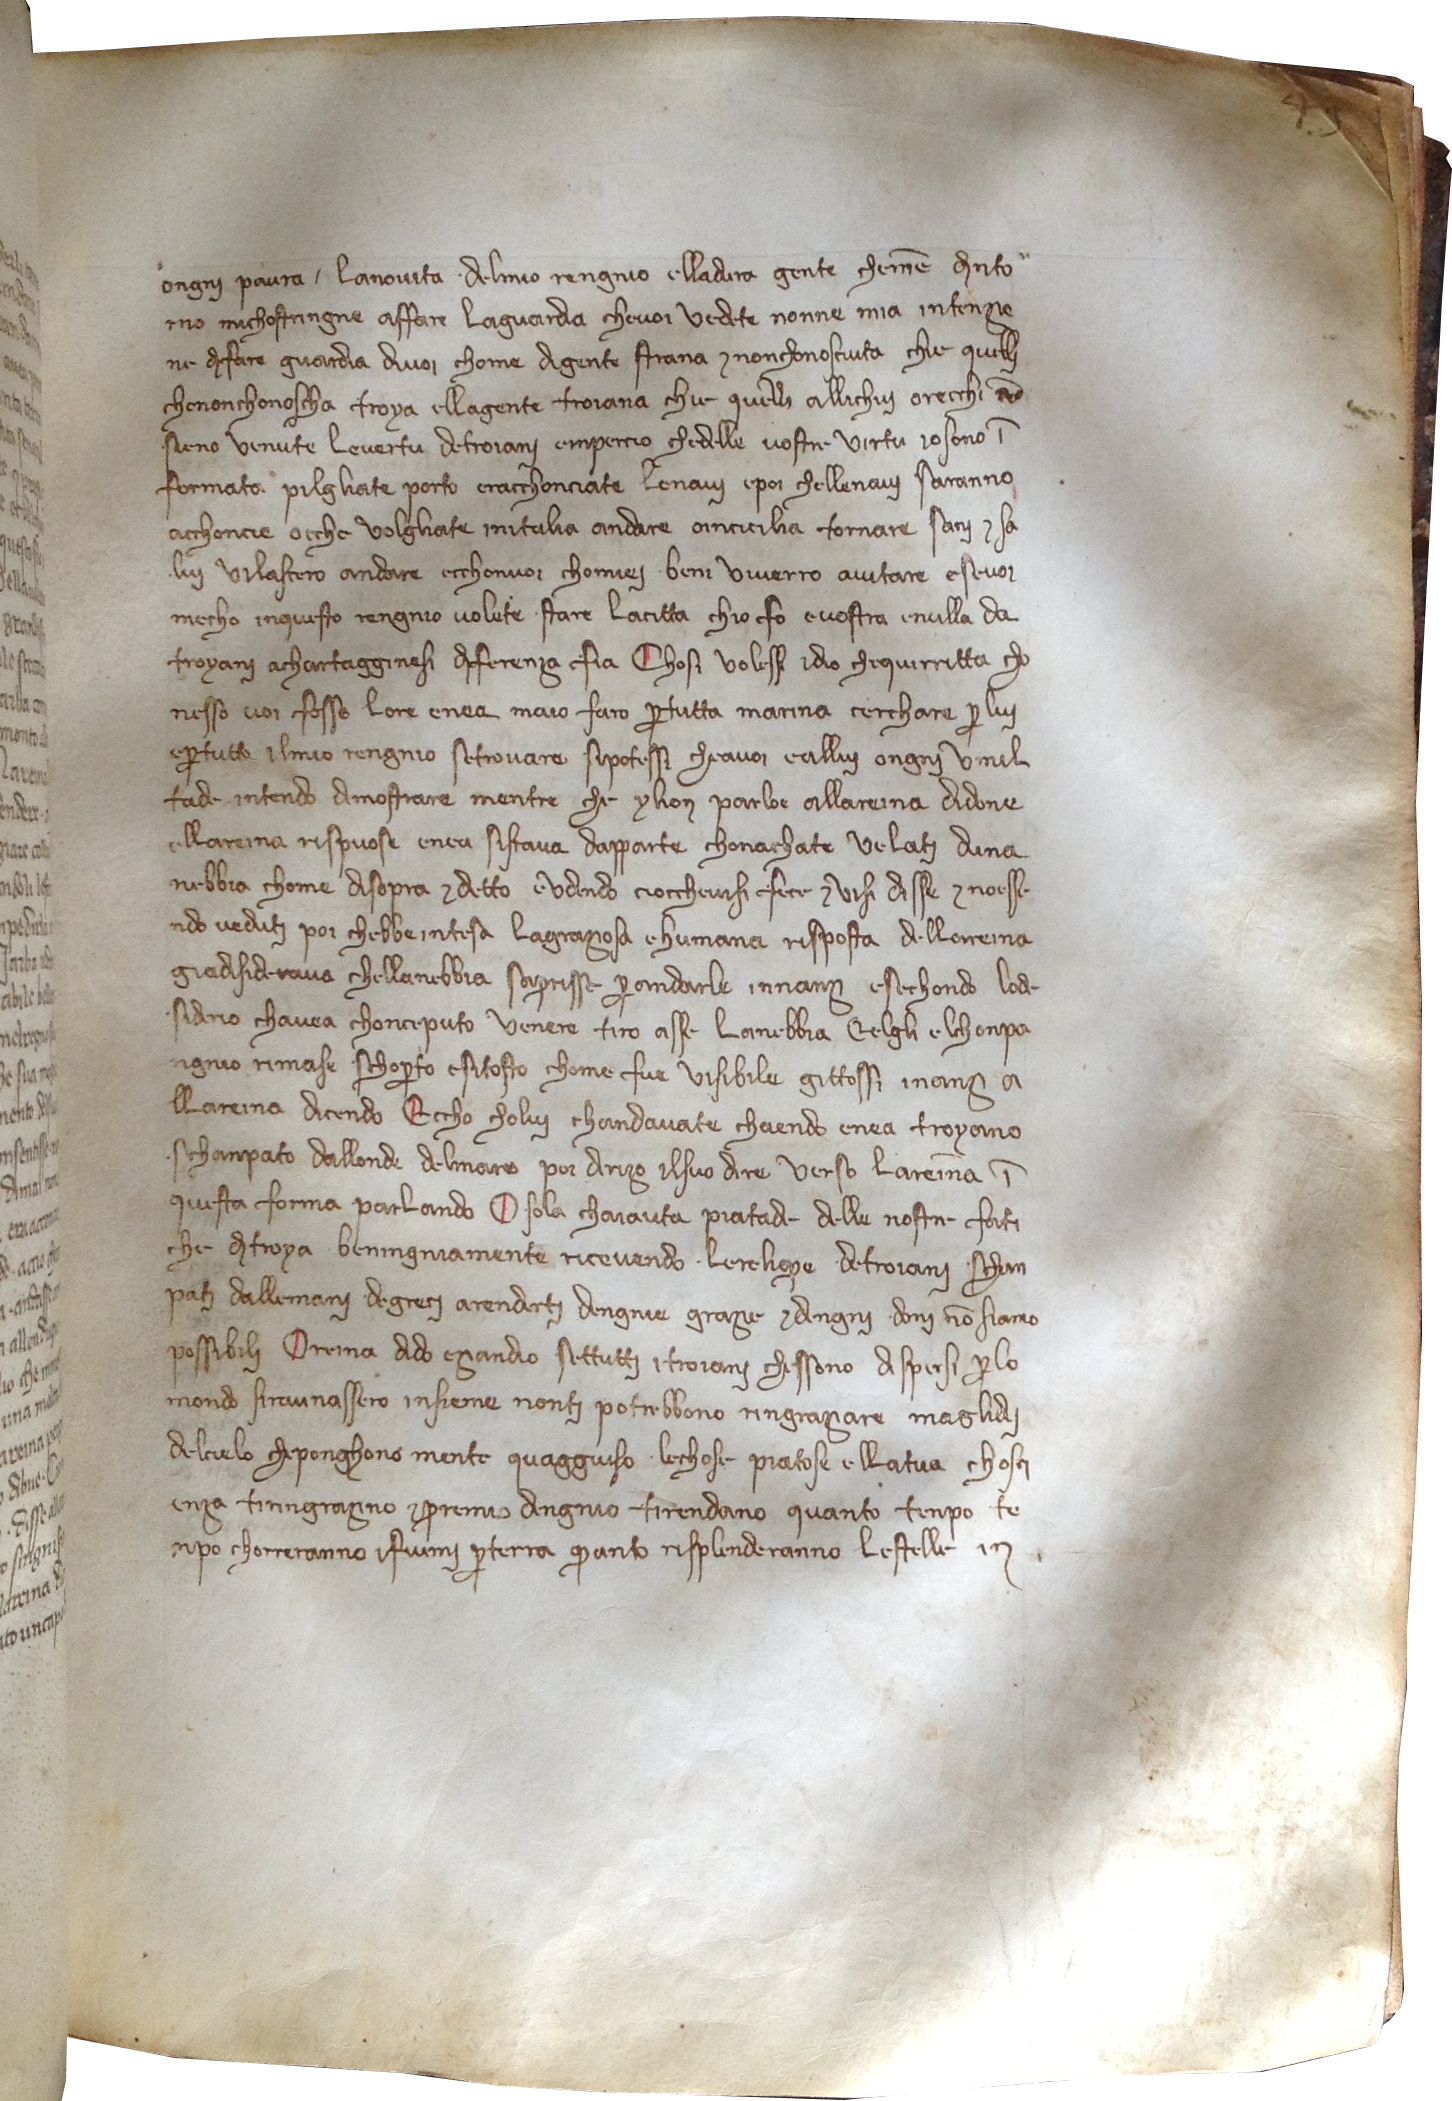 45
ongni paura / lanovita delmio rengnio elladura gente chem̄e dinto
rno michostringne affare laguardia chevoi vedete nonne mia intenzio
ne difare guardia divoi chome digente strana ⁊ nonchonosciuta chie quelli
chenonchonoscha troya ellagente troiana chie quelli allichui orecchi nō
sieno venute levertu detroiani empercio chedelle vostre virtu iosono ī
formato. pilgliate porto eracchonciate lenavi epoi chellenavi saranno
acchoncie ocche volgliate initalia andare oincicilia tornare sani ⁊ sa
lvi vilascero andare ecchonvoi chomiei beni viverro aiutare esevoi
mecho inquesto rengnio volete stare lacitta chio fo evostra enulla da
troyani achartagginesi diferenza fia Chosi volessi idio chequirritta cho
nesso voi fosso lore enea maio faro ꝑtutta marina cerchare ꝑlui
eꝑtutto ilmio rengnio setrovare sipotessi cheavoi eallui ongni vmil
tade intendo dimostrare mentre che ylion parloe allareina didone
ellareina rispuose enea sistava dapparte chonachate velati duna
nebbia chome disopra ⁊ detto evdendo cioccheuisi fece ⁊ visi disse ⁊ noesse
ndo veduti poi chebbe intesa lagraziosa ehumana risposta dellareina
giadisiderava chellanebbia saprisse ꝑandarle innanzi esechondo lode
siderio chavea chonceputo venere tiro asse lanebbia Eelgli elchonpa
ngnio rimase schoꝑto esitosto chome fue visibile gittossi inanzi a
llareina dicendo Eccho cholui chandavate chaendo enea troyano
schanpato dallonde delmare poi dirizo ilsuo dire verso lareina ī
questa forma parlando O sola chaiavta piatade delle nostre fati
che ditroya beningniamente ricevendo lerelique detroiani schan
pati dallemani degreci arenderti dengnie grazie ⁊ dengni doni nō siamo
possibili Oreina dido eziandio settutti itroiani chessono dispersi ꝑlo
mondo siraunassero insieme nonti potrebbono ringraziare maglidij
delcielo cheponghono mente quagguiso lechose piatose ellatua chosci
enza tiringrazino ⁊ premio dengnio tirendano quanto tenpo te
npo chorreranno ifiumi ꝑterra quanto risplenderanno lestelle in